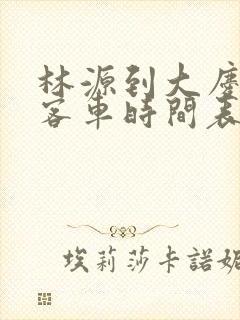 林源到大慶
客車時間表
埃莉莎卡諾妮